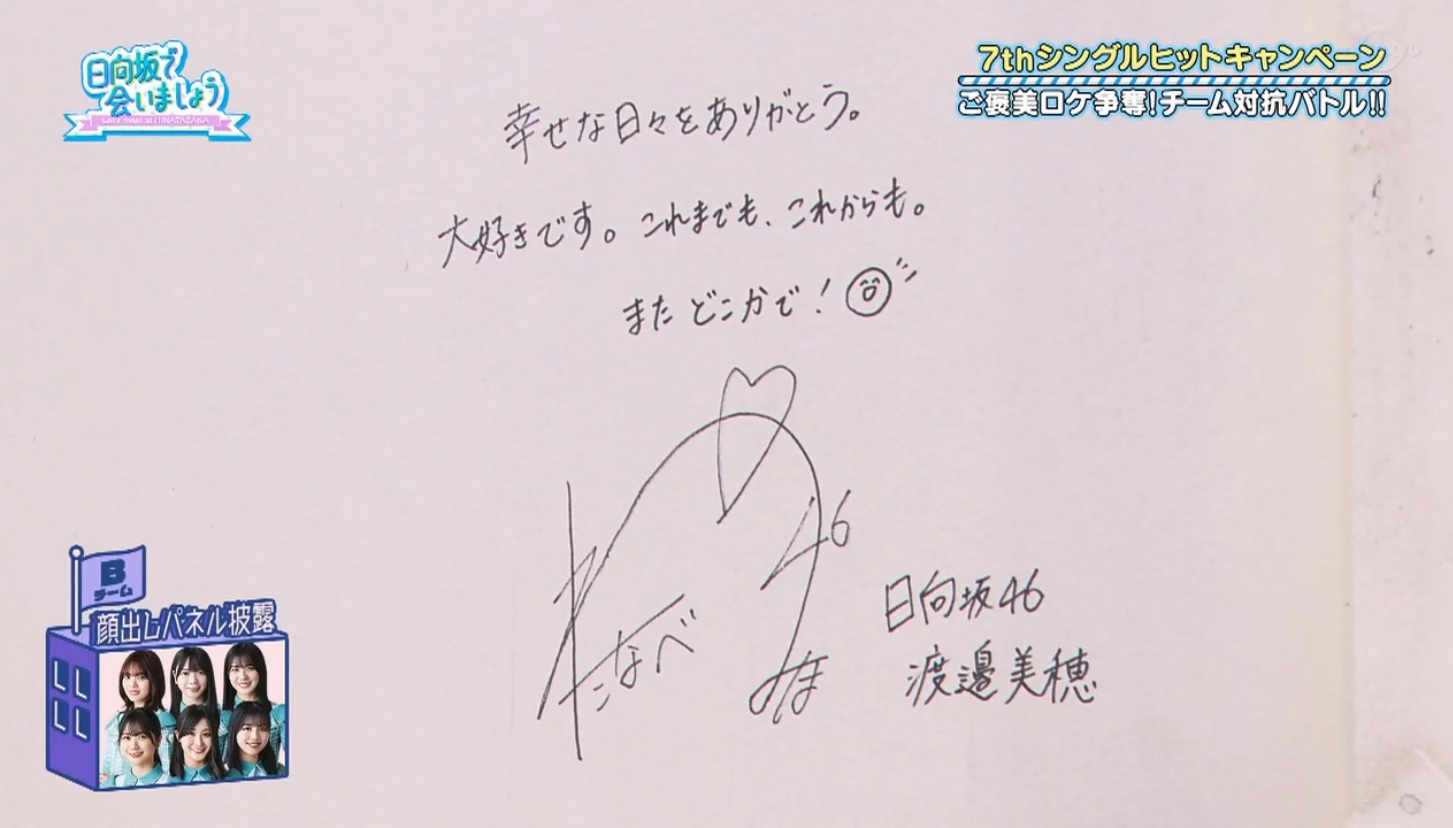 日向坂で
会いましょう
Let's meet at HINATAZAKA
7thシングルヒットキャンペーン
ご褒美ロケ争奪!チーム対抗バトル!!
幸せな日々をありがとう。
大好きです。これまでも、これからも。
またどこかで!
わたなべ
みほ
46
日向坂46
渡邉美穂
B
チーム
顔出しパネル披露